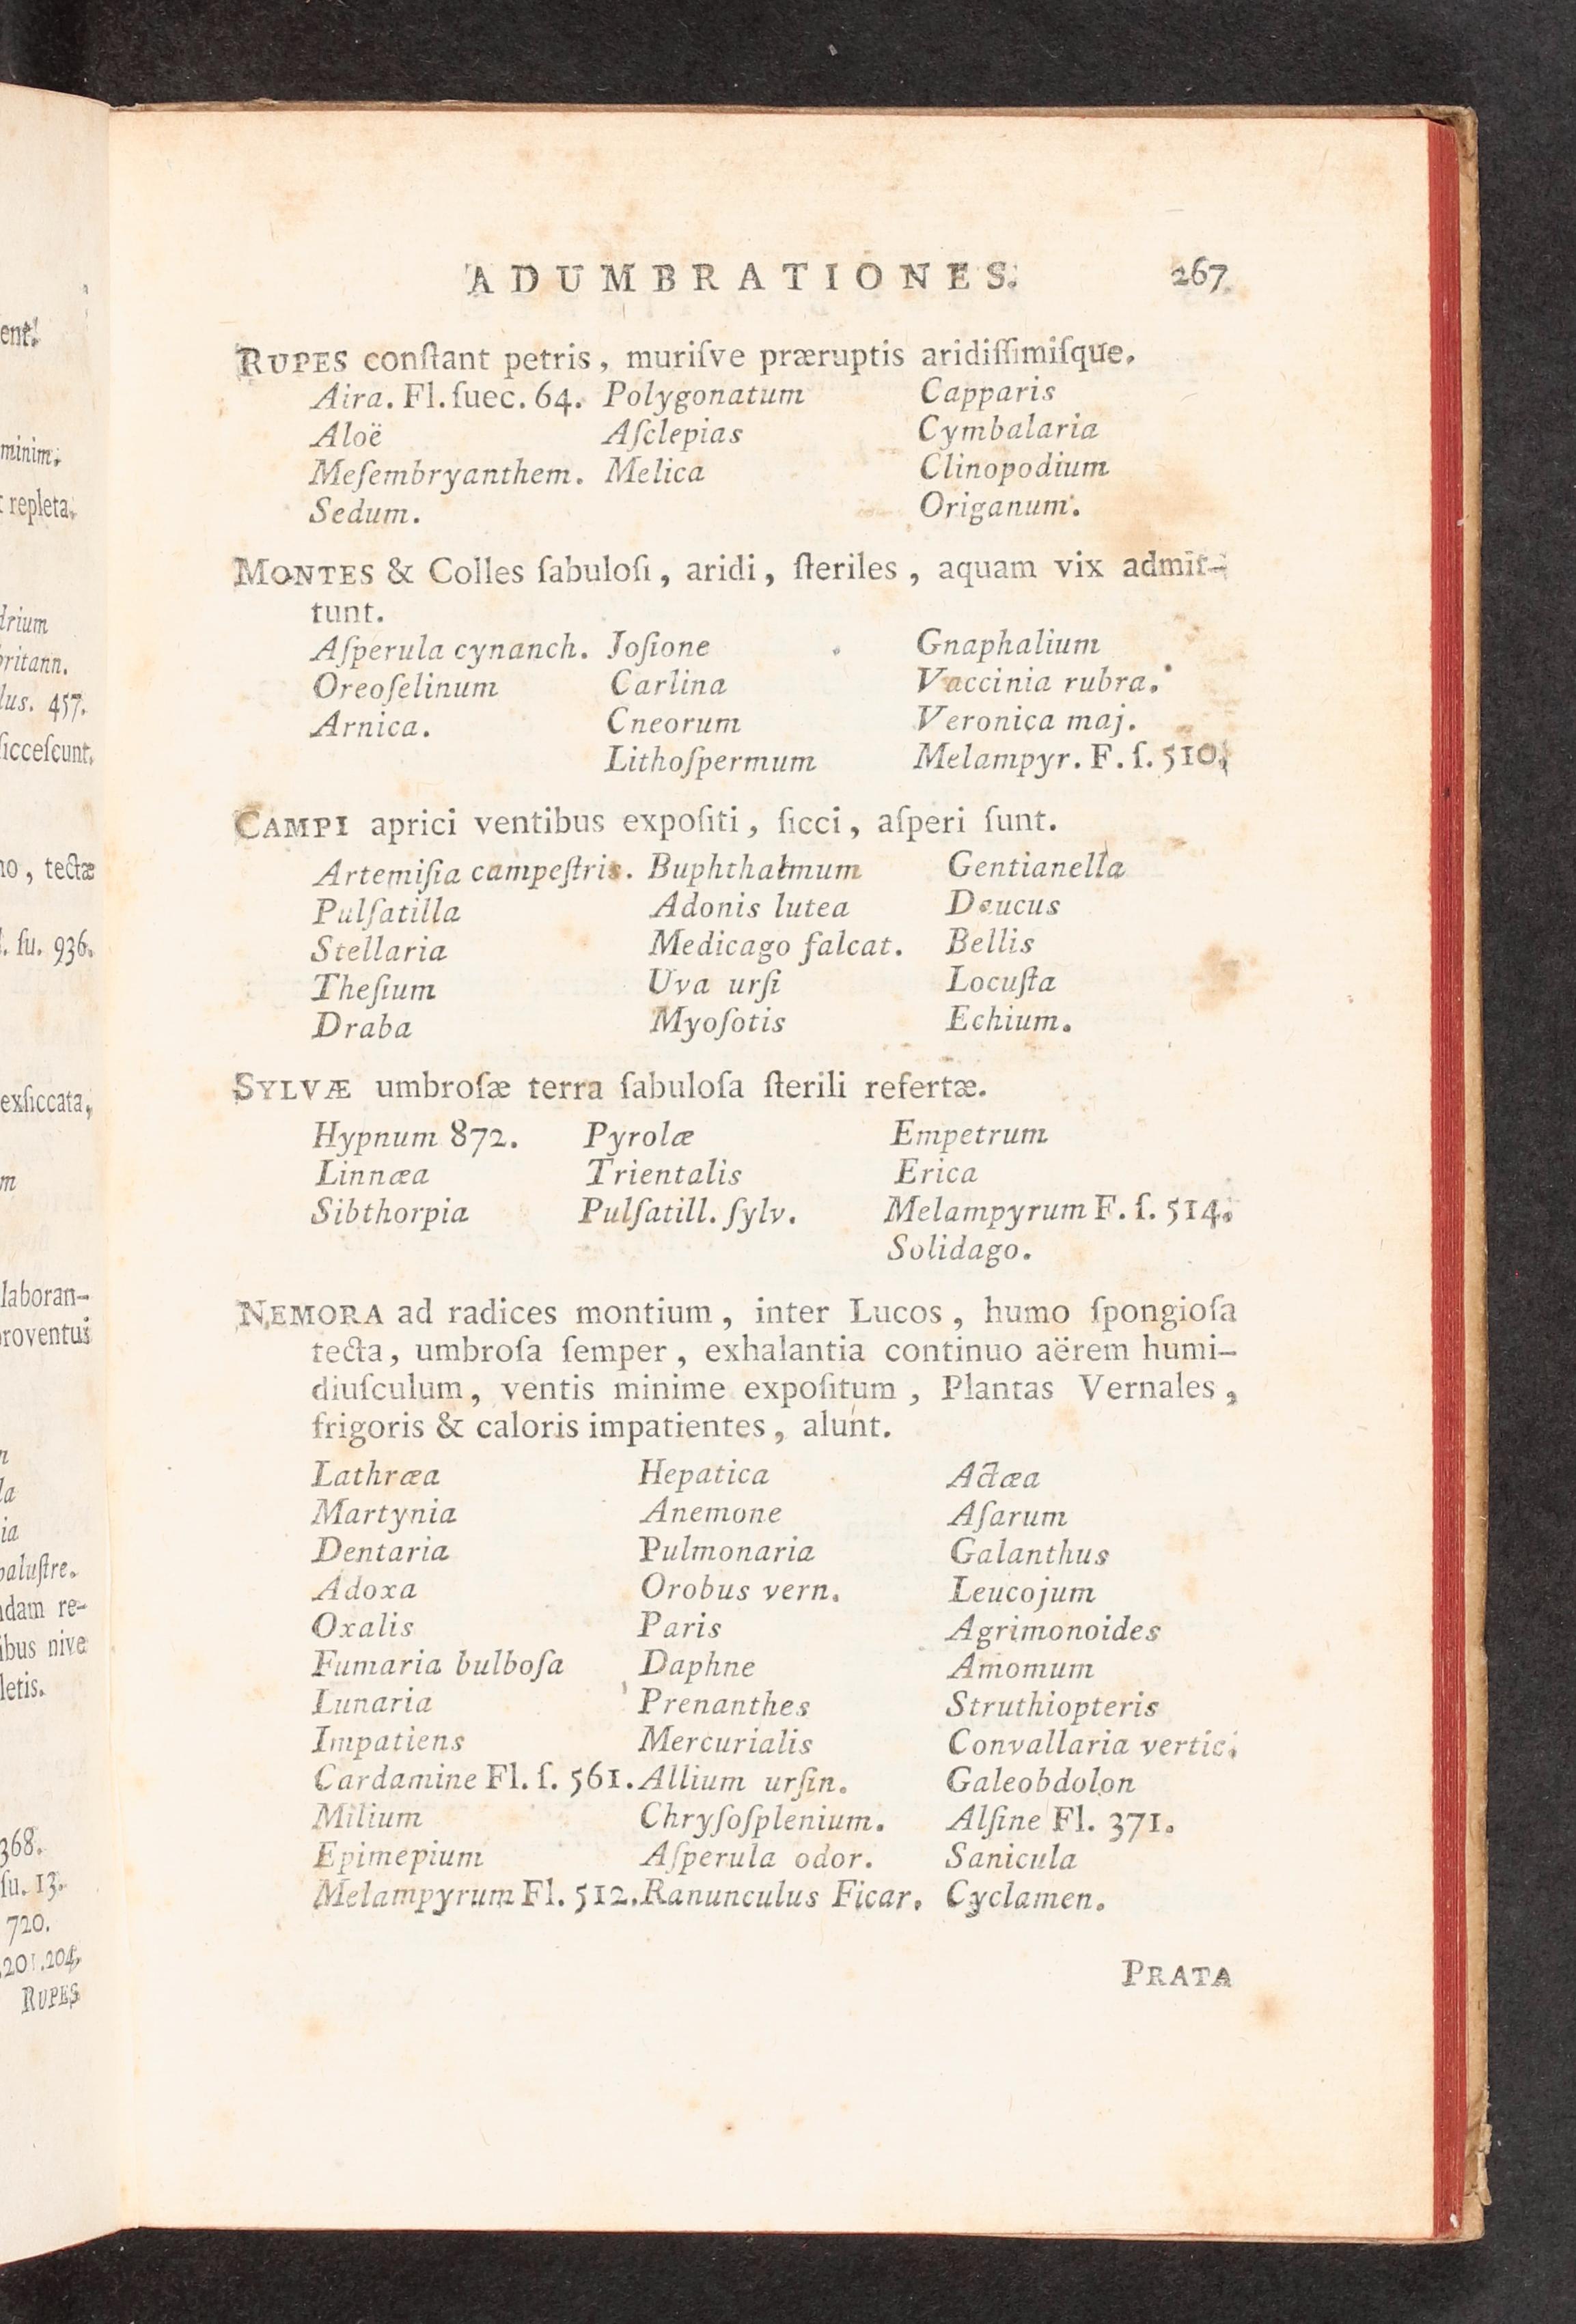 ADUMBRATIONES. 267
RUPES conſtant petris, muriſve præruptis aridiſſimiſque.
Aira. Fl. ſuec. 64. Polygonatum Capparis
Aloë Aſclepias Cymbalaria
Meſembryanthem. Melica Clinopodium
Sedum. Origanum.
MONTES & Colles ſabuloſi, aridi, ſteriles, aquam vix admit-
tunt.
Aſperula cynanch. Joſione Gnaphalium
Oreoſelinum Carlina Vaccinia rubra.
Arnica. Cneorum Veronica maj.
Lithoſpermum Melampyr. F. ſ. 510.
CAMPI aprici ventibus expoſiti, ſicci, aſperi ſunt.
Artemiſia campeſtris. Buphthalmum Gentianella
Pulſatilla Adonis lutea Daucus
Stellaria Medicago falcat. Bellis
Theſium Uva urſi Locuſta
Draba Myoſotis Echium.
SYLVÆ umbroſæ terra ſabuloſa ſterili refertæ.
Hypnum 872. Pyrolæ Empetrum
Linnæa Trientalis Erica
Sibthorpia Pulſatill. ſylv. Melampyrum F. ſ. 514.
Solidago.
NEMORA ad radices montium, inter Lucos, humo ſpongioſa
tecta, umbroſa ſemper, exhalantia continuo aërem humi-
diuſculum, ventis minime expoſitum, Plantas Vernales,
frigoris & caloris impatientes, alunt.
Lathræa Hepatica Actæa
Martynia Anemone Aſarum
Dentaria Pulmonaria Galanthus
Adoxa Orobus vern. Leucojum
Oxalis Paris Agrimonoides
Fumaria bulboſa Daphne Amomum
Lunaria Prenanthes Struthiopteris
Impatiens Mercurialis Convallaria vertic.
Cardamine Fl. ſ. 561. Allium urſin. Galeobdolon
Milium Chryſoſplenium. Alſine Fl. 371.
Epimepium Aſperula odor. Sanicula
Melampyrum Fl. 512. Ranunculus Ficar. Cyclamen.
PRATA